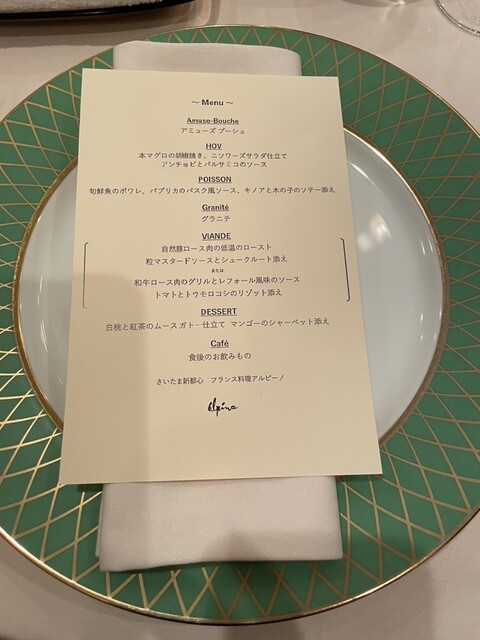 ～ Menu ～
Amuse-Bouche
アミューズ ブーシュ
HOV
本マグロの胡椒焼き、ニソワーズサラダ仕立て
アンチョビとバルサミコのソース
POISSON
旬鮮魚のポワレ、パプリカのバスク風ソース、キノアと木の子のソテー添え
Granité
グラニテ
VIANDE
自然豚ロース肉の低温のロースト
粒マスタードソースとシュークルート添え
または
和牛ロース肉のグリルとレフォール風味のソース
トマトとトウモロコシのリゾット添え
DESSERT
白桃と紅茶のムースガトー仕立て マンゴーのシャーベット添え
Café
食後のお飲みもの
さいたま新都心 フランス料理アルピーノ
alpino